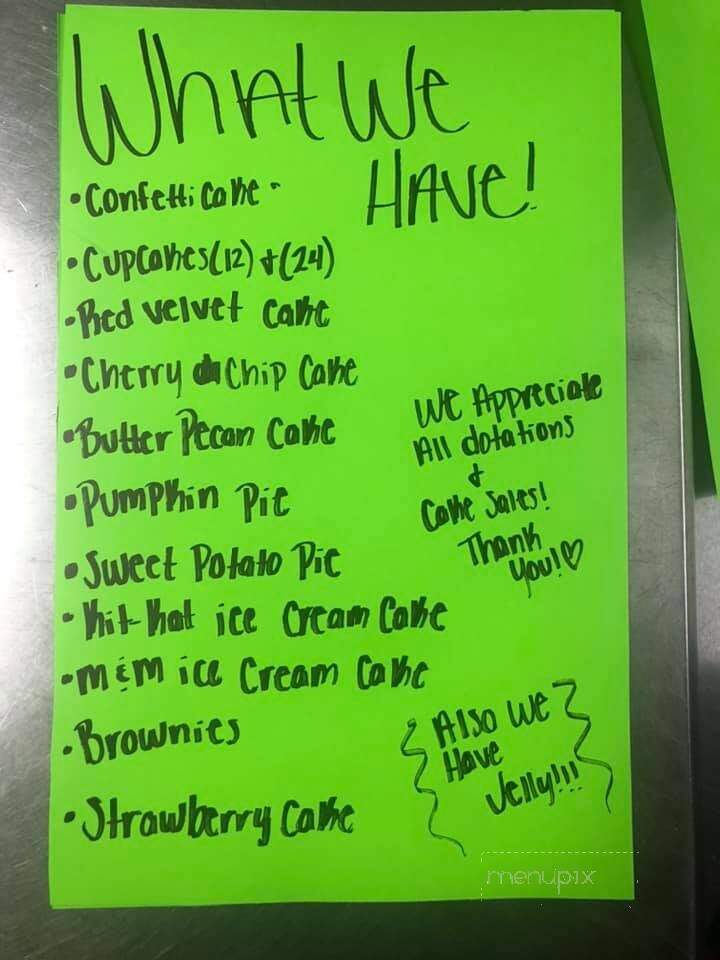 What We
HAVE!
• Confetti Cake •
• Cupcakes (12) + (24)
• Red velvet Cake
• Cherry Chip Cake
• Butter Pecan Cake
• Pumpkin Pie
• Sweet Potato Pie
• Kit-Kat ice Cream Cake
• m&m ice Cream Cake
• Brownies
• Strawberry Cake
We Appreciate
All dotations
+
Cake Sales!
Thank
You!♡
Also We
Have
Jelly!!!
menupix